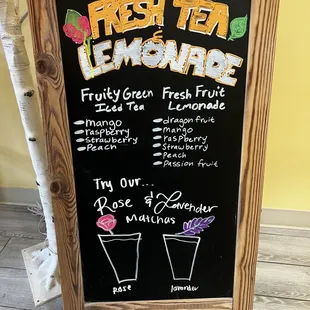 FRESH TEA
&
LEMONADE
Fruity Green
Iced Tea
mango
raspberry
Strawberry
Peach
Fresh Fruit
Lemonade
dragon fruit
mango
raspberry
Strawberry
Peach
Passion fruit
Try Our...
Rose & Lavender
Matchas
rose
lavender